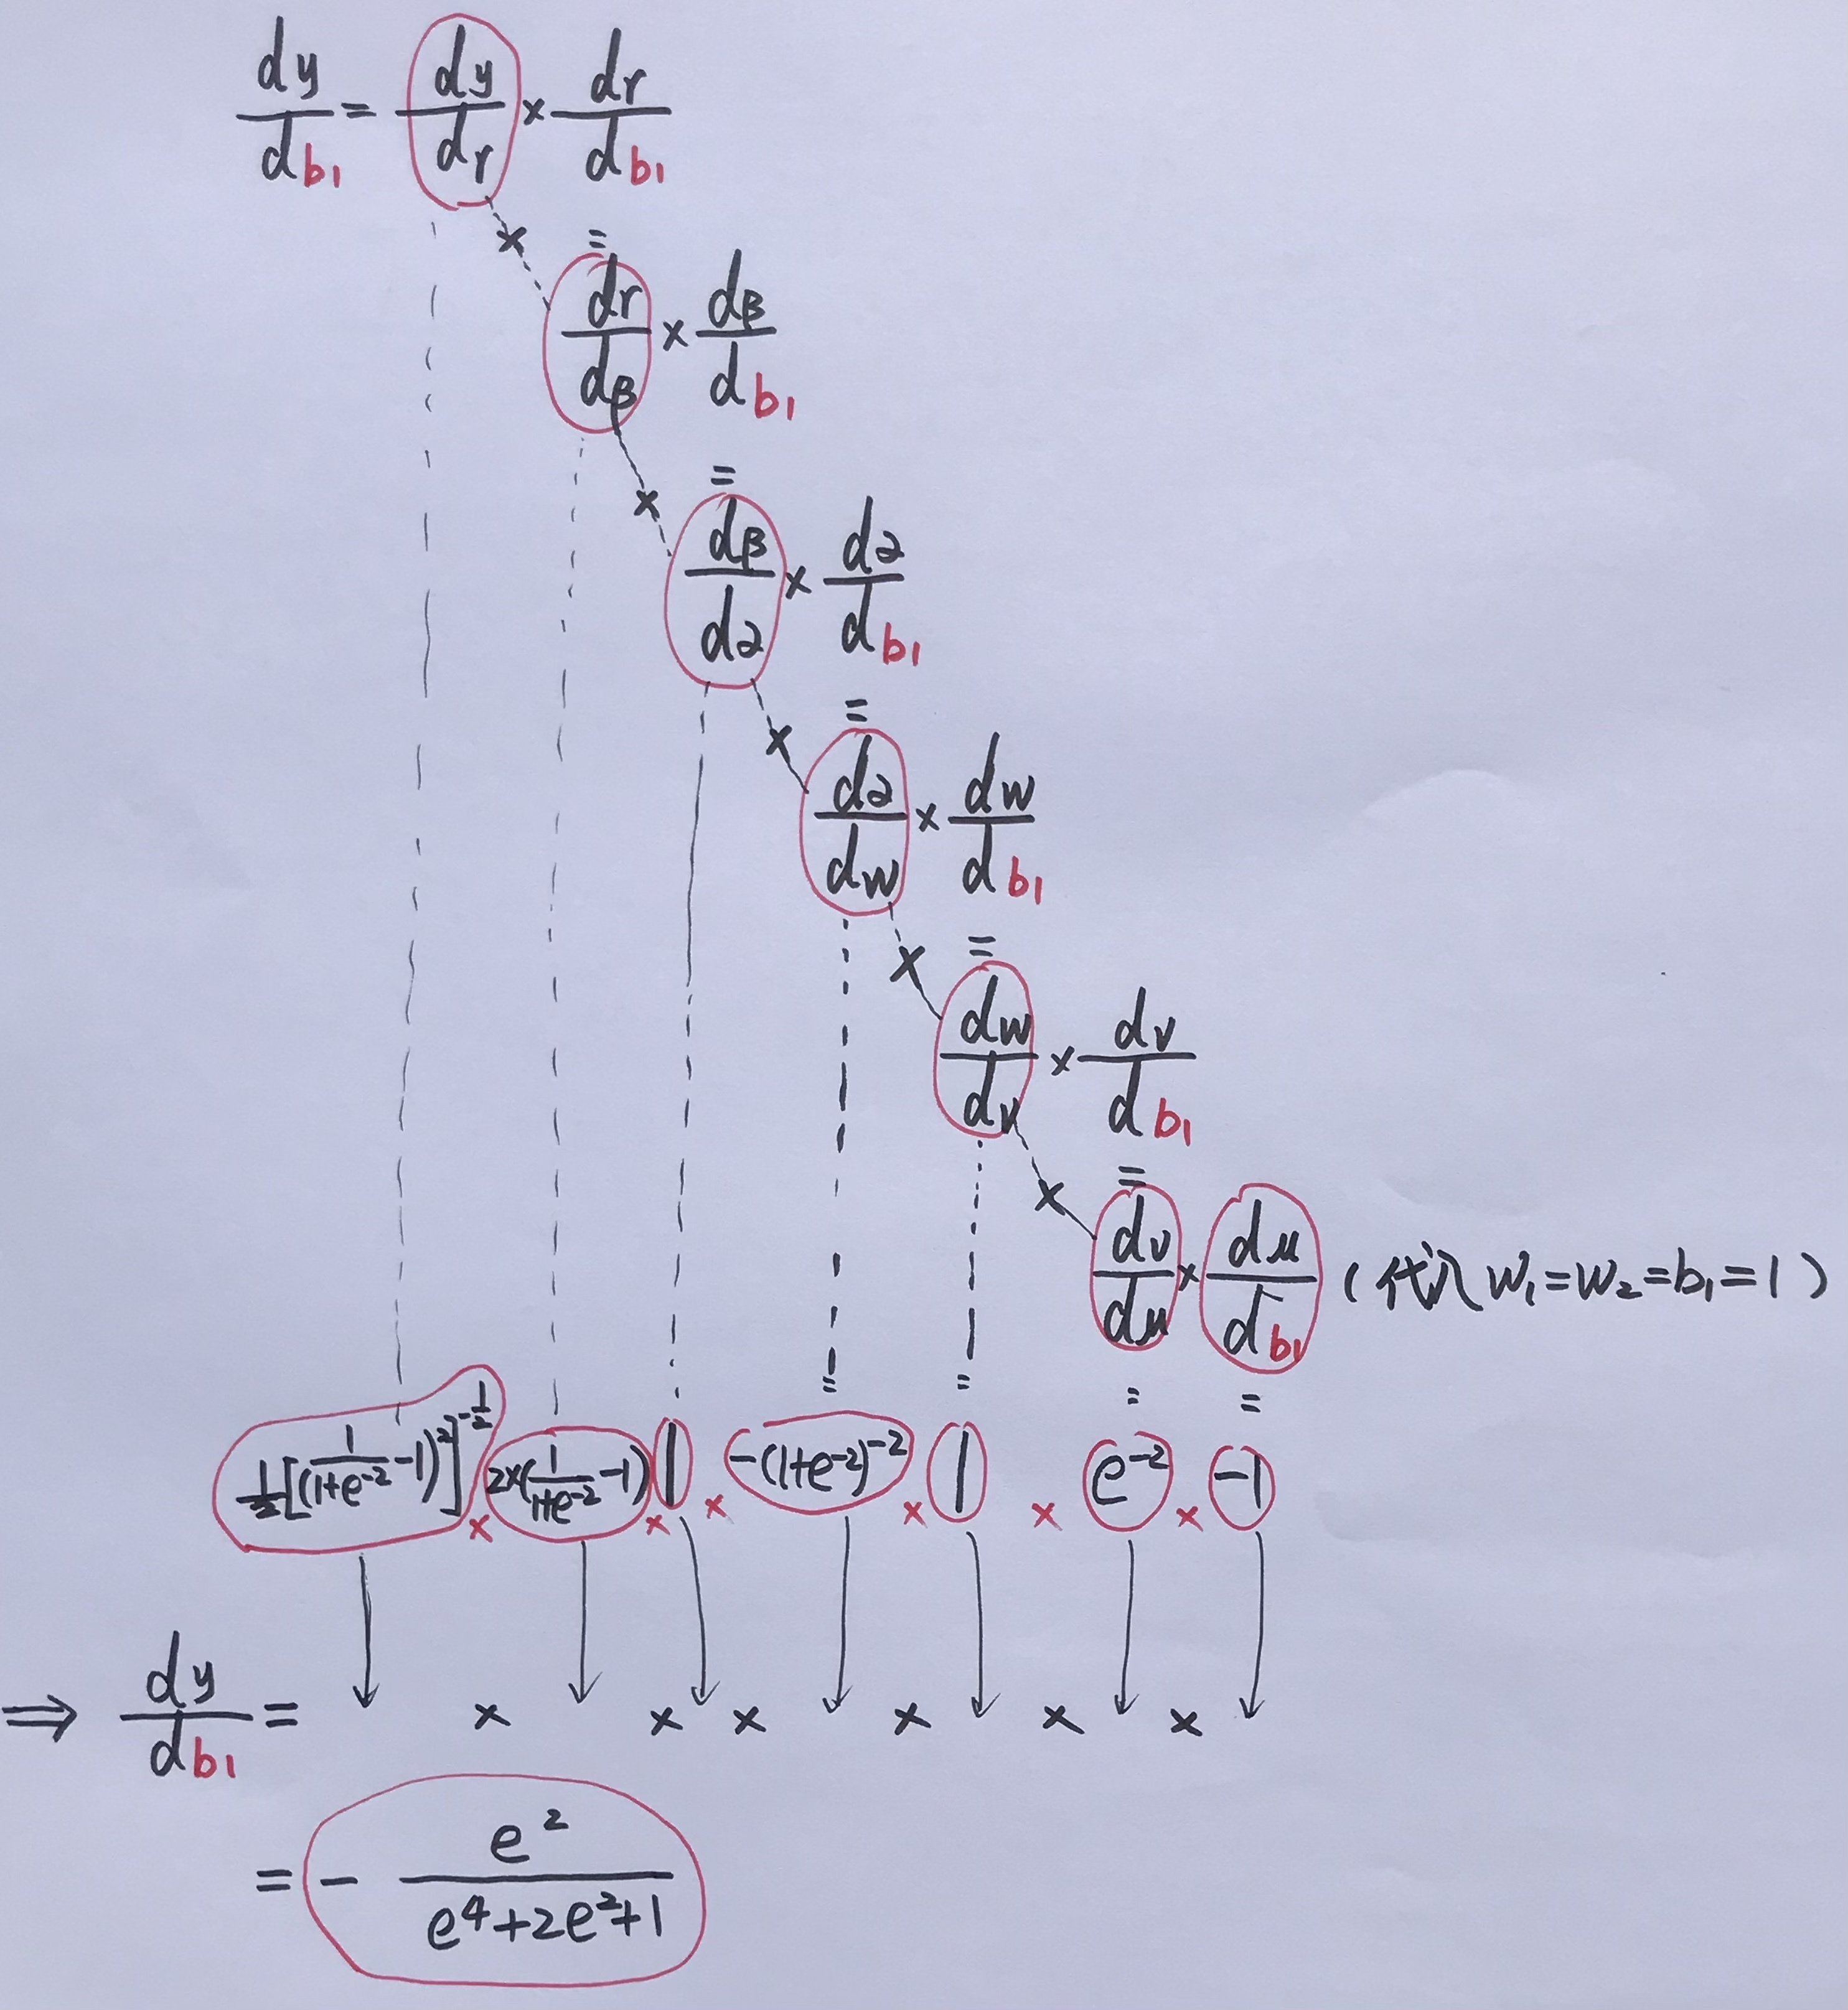 dy/db₁ = dy/dr × dr/db₁
× = dr/dβ × dβ/db₁
× = dβ/d∂ × d∂/db₁
× = d∂/dw × dw/db₁
× = dw/dv × dv/db₁
× = dv/du × du/db₁ (代入 w₁=w₂=b₁=1)
= = = =
½[(1/(1+e⁻²) -1)²]^(-½) × 2×(1/(1+e⁻²) -1) × 1 × -(1+e⁻²)⁻² × 1 × e⁻² × -1
⇒ dy/db₁ = × × × × × ×
= - e²/(e⁴+2e²+1)